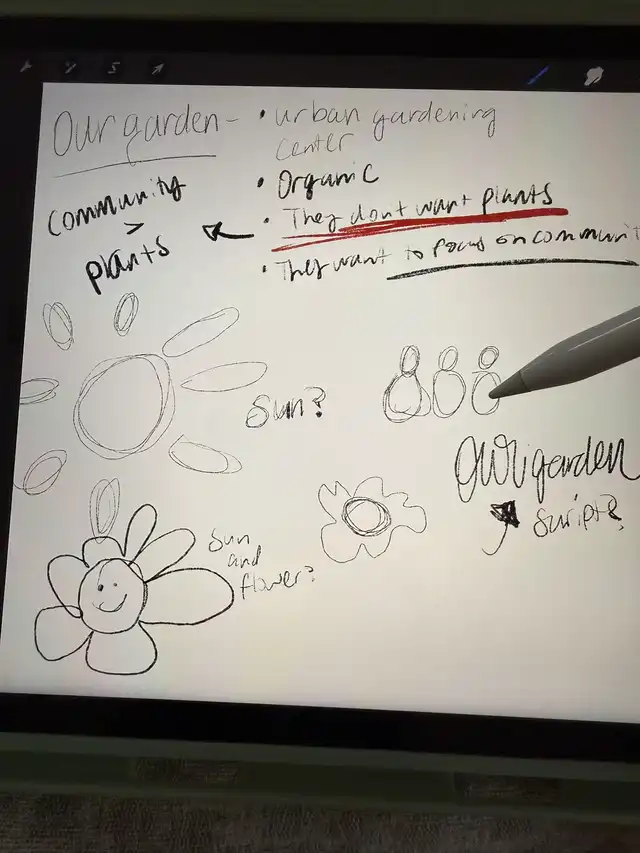 Our garden - • urban gardening
center
• Organic
• They dont want plants
• They want to focus on communit
community
>
plants
Sun?
ourgarden
Script?
Sun
and
flower?